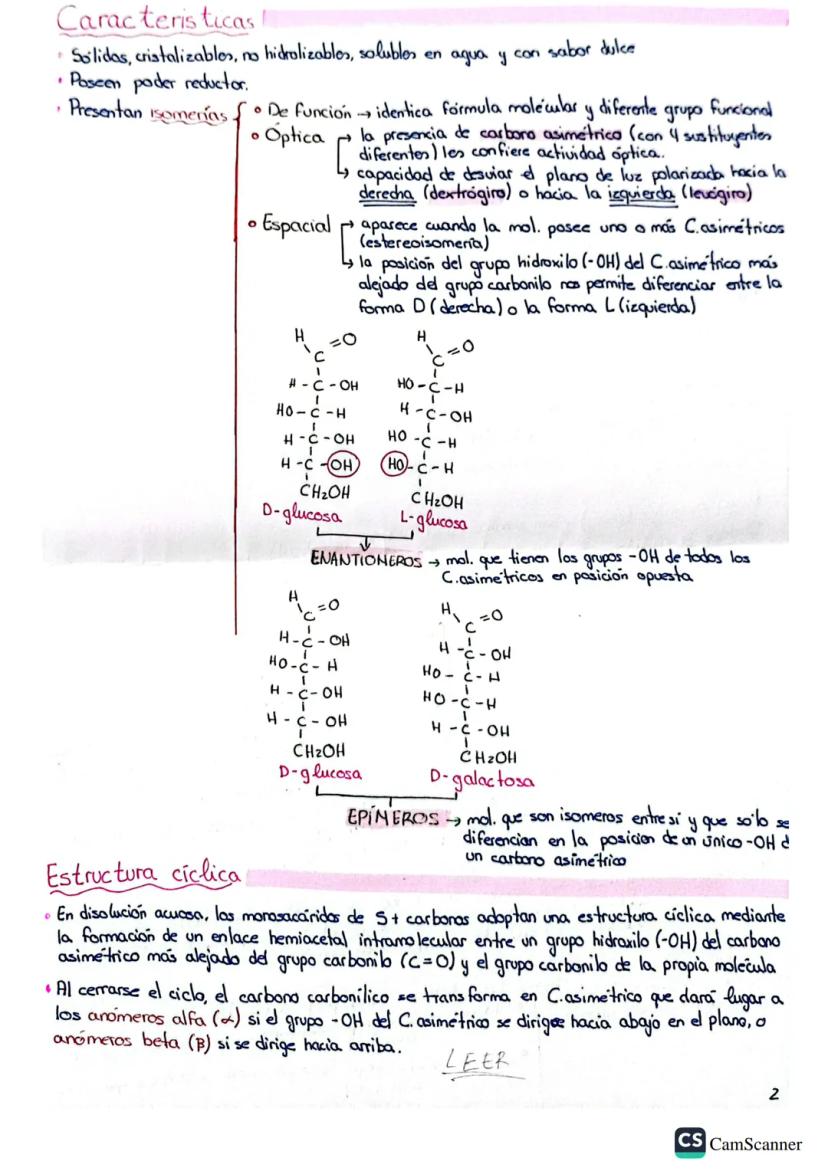 Características
• Sólidos, cristalizables, no hidrolizables, solubles en agua y con sabor dulce
• Poseen poder reductor.
• Presentan isomerías
• De Función → identica fórmula molécular y diferente grupo funcional
• Óptica → la presencia de carbono asimétrico (con 4 sustituyentes
diferentes) les confiere actividad óptica.
↳ capacidad de desviar el plano de luz polarizada hacia la
derecha (dextrógiro) o hacia la izquierda (levógiro)
• Espacial → aparece cuando la mol. posee uno o más C.asimétricos
(estereoisomería)
↳ la posición del grupo hidroxilo (-OH) del C.asimétrico más
alejado del grupo carbonilo nos permite diferenciar entre la
forma D (derecha) o la forma L (izquierda)
H =O H =O
C C
H - C - OH HO - C - H
HO - C - H H - C - OH
H - C - OH HO - C - H
H - C - OH HO - C - H
CH2OH CH2OH
D-glucosa L-glucosa
ENANTIÓNEROS → mol. que tienen los grupos -OH de todos los
C.asimétricos en posición opuesta
H =O H =O
C C
H - C - OH H - C - OH
HO - C - H HO - C - H
H - C - OH HO - C - H
H - C - OH H - C - OH
CH2OH CH2OH
D-glucosa D-galactosa
EPÍMEROS → mol. que son isomeros entre sí y que sólo se
diferencian en la posicion de un único -OH d
un carbono asimétrico
Estructura cíclica
• En disolución acuosa, los monosacáridos de 5+ carbonos adoptan una estructura cíclica mediante
la formación de un enlace hemiacetal intramolecular entre un grupo hidroxilo (-OH) del carbono
asimétrico más alejado del grupo carbonilo (C=O) y el grupo carbonilo de la propia molécula
• Al cerrarse el ciclo, el carbono carbonílico se transforma en C.asimétrico que dará lugar a
los anómeros alfa (α) si el grupo -OH del C.asimétrico se dirige hacia abajo en el plano, o
anómeros beta (β) si se dirige hacia arriba.
LEER
2
CS CamScanner